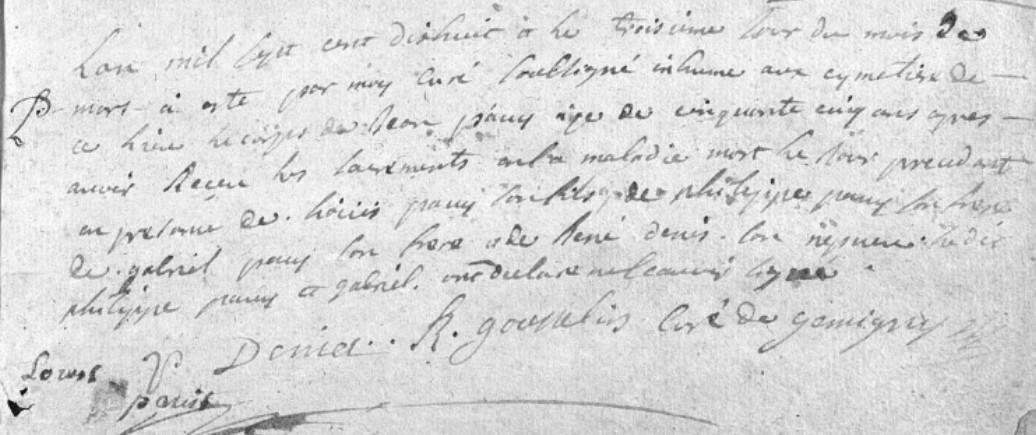 Lan mil sept cent dixhuit et le troisieme Jour du mois de
mars a este par moy curé soubsigné inhumé aux cymetiere de
ce lieu le corps de Jean pauy age de cinquante cinq ans apres
avoir Receu les sacrements en la maladie mort le Jour precedant
en presence de Louis pauy son fils de philippe pauy son frere
de gabriel pauy son frere et de René denis son nepveu ledit
philippe pauy et gabriel ont declaré ne scauoir signe
Deniet R. gousselin Curé de gemigny
Louis
pauis